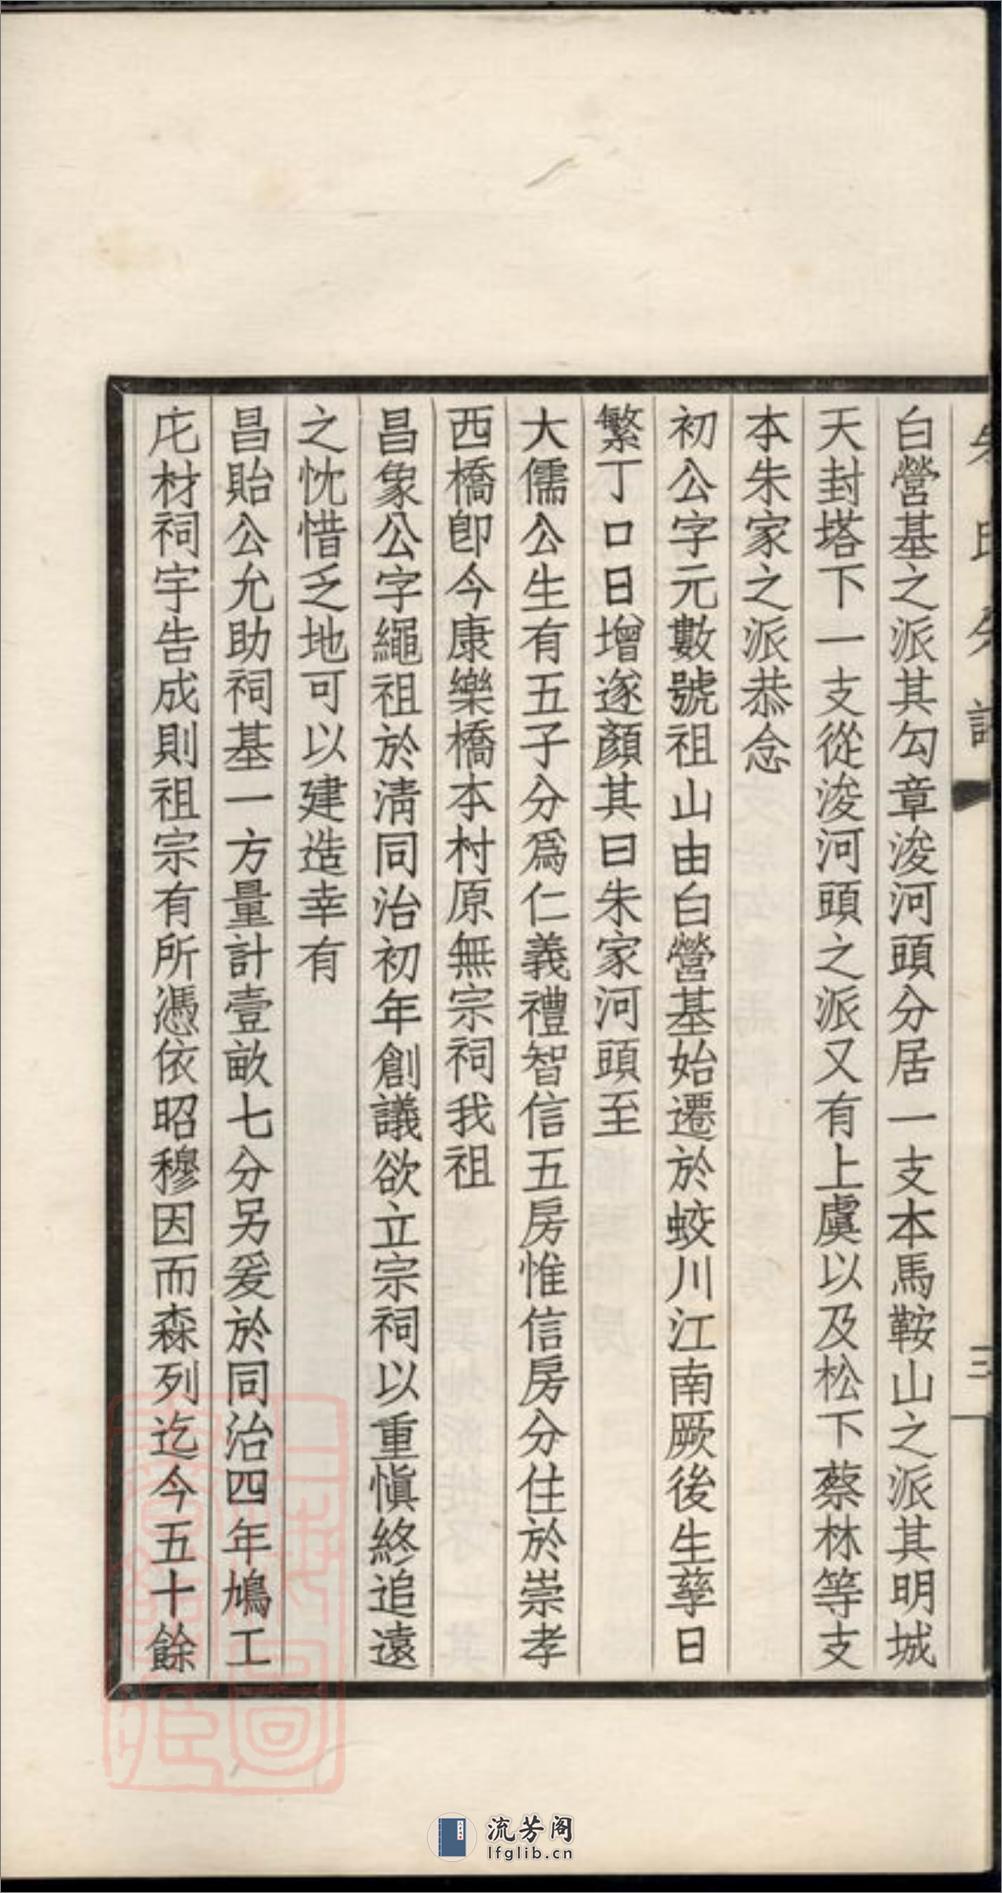 朱氏
三
白營基之派其勾章浚河頭分居一支本馬鞍山之派其明城
天封塔下一支從浚河頭之派又有上虞以及松下蔡林等支
本朱家之派恭念
初公字元數號祖山由白營基始遷於蛟川江南厥後生孳日
繁丁口日增遂顏其曰朱家河頭至
大儒公生有五子分爲仁義禮智信五房惟信房分住於崇孝
西橋卽今康樂橋本村原無宗祠我祖
昌象公字繩祖於淸同治初年創議欲立宗祠以重愼終追遠
之忱惜乏地可以建造幸有
昌貽公允助祠基一方量計壹畝七分另爰於同治四年鳩工
庀材祠宇告成則祖宗有所憑依昭穆因而森列迄今五十餘
上海圖書館藏
流芳阁
lfglib.cn